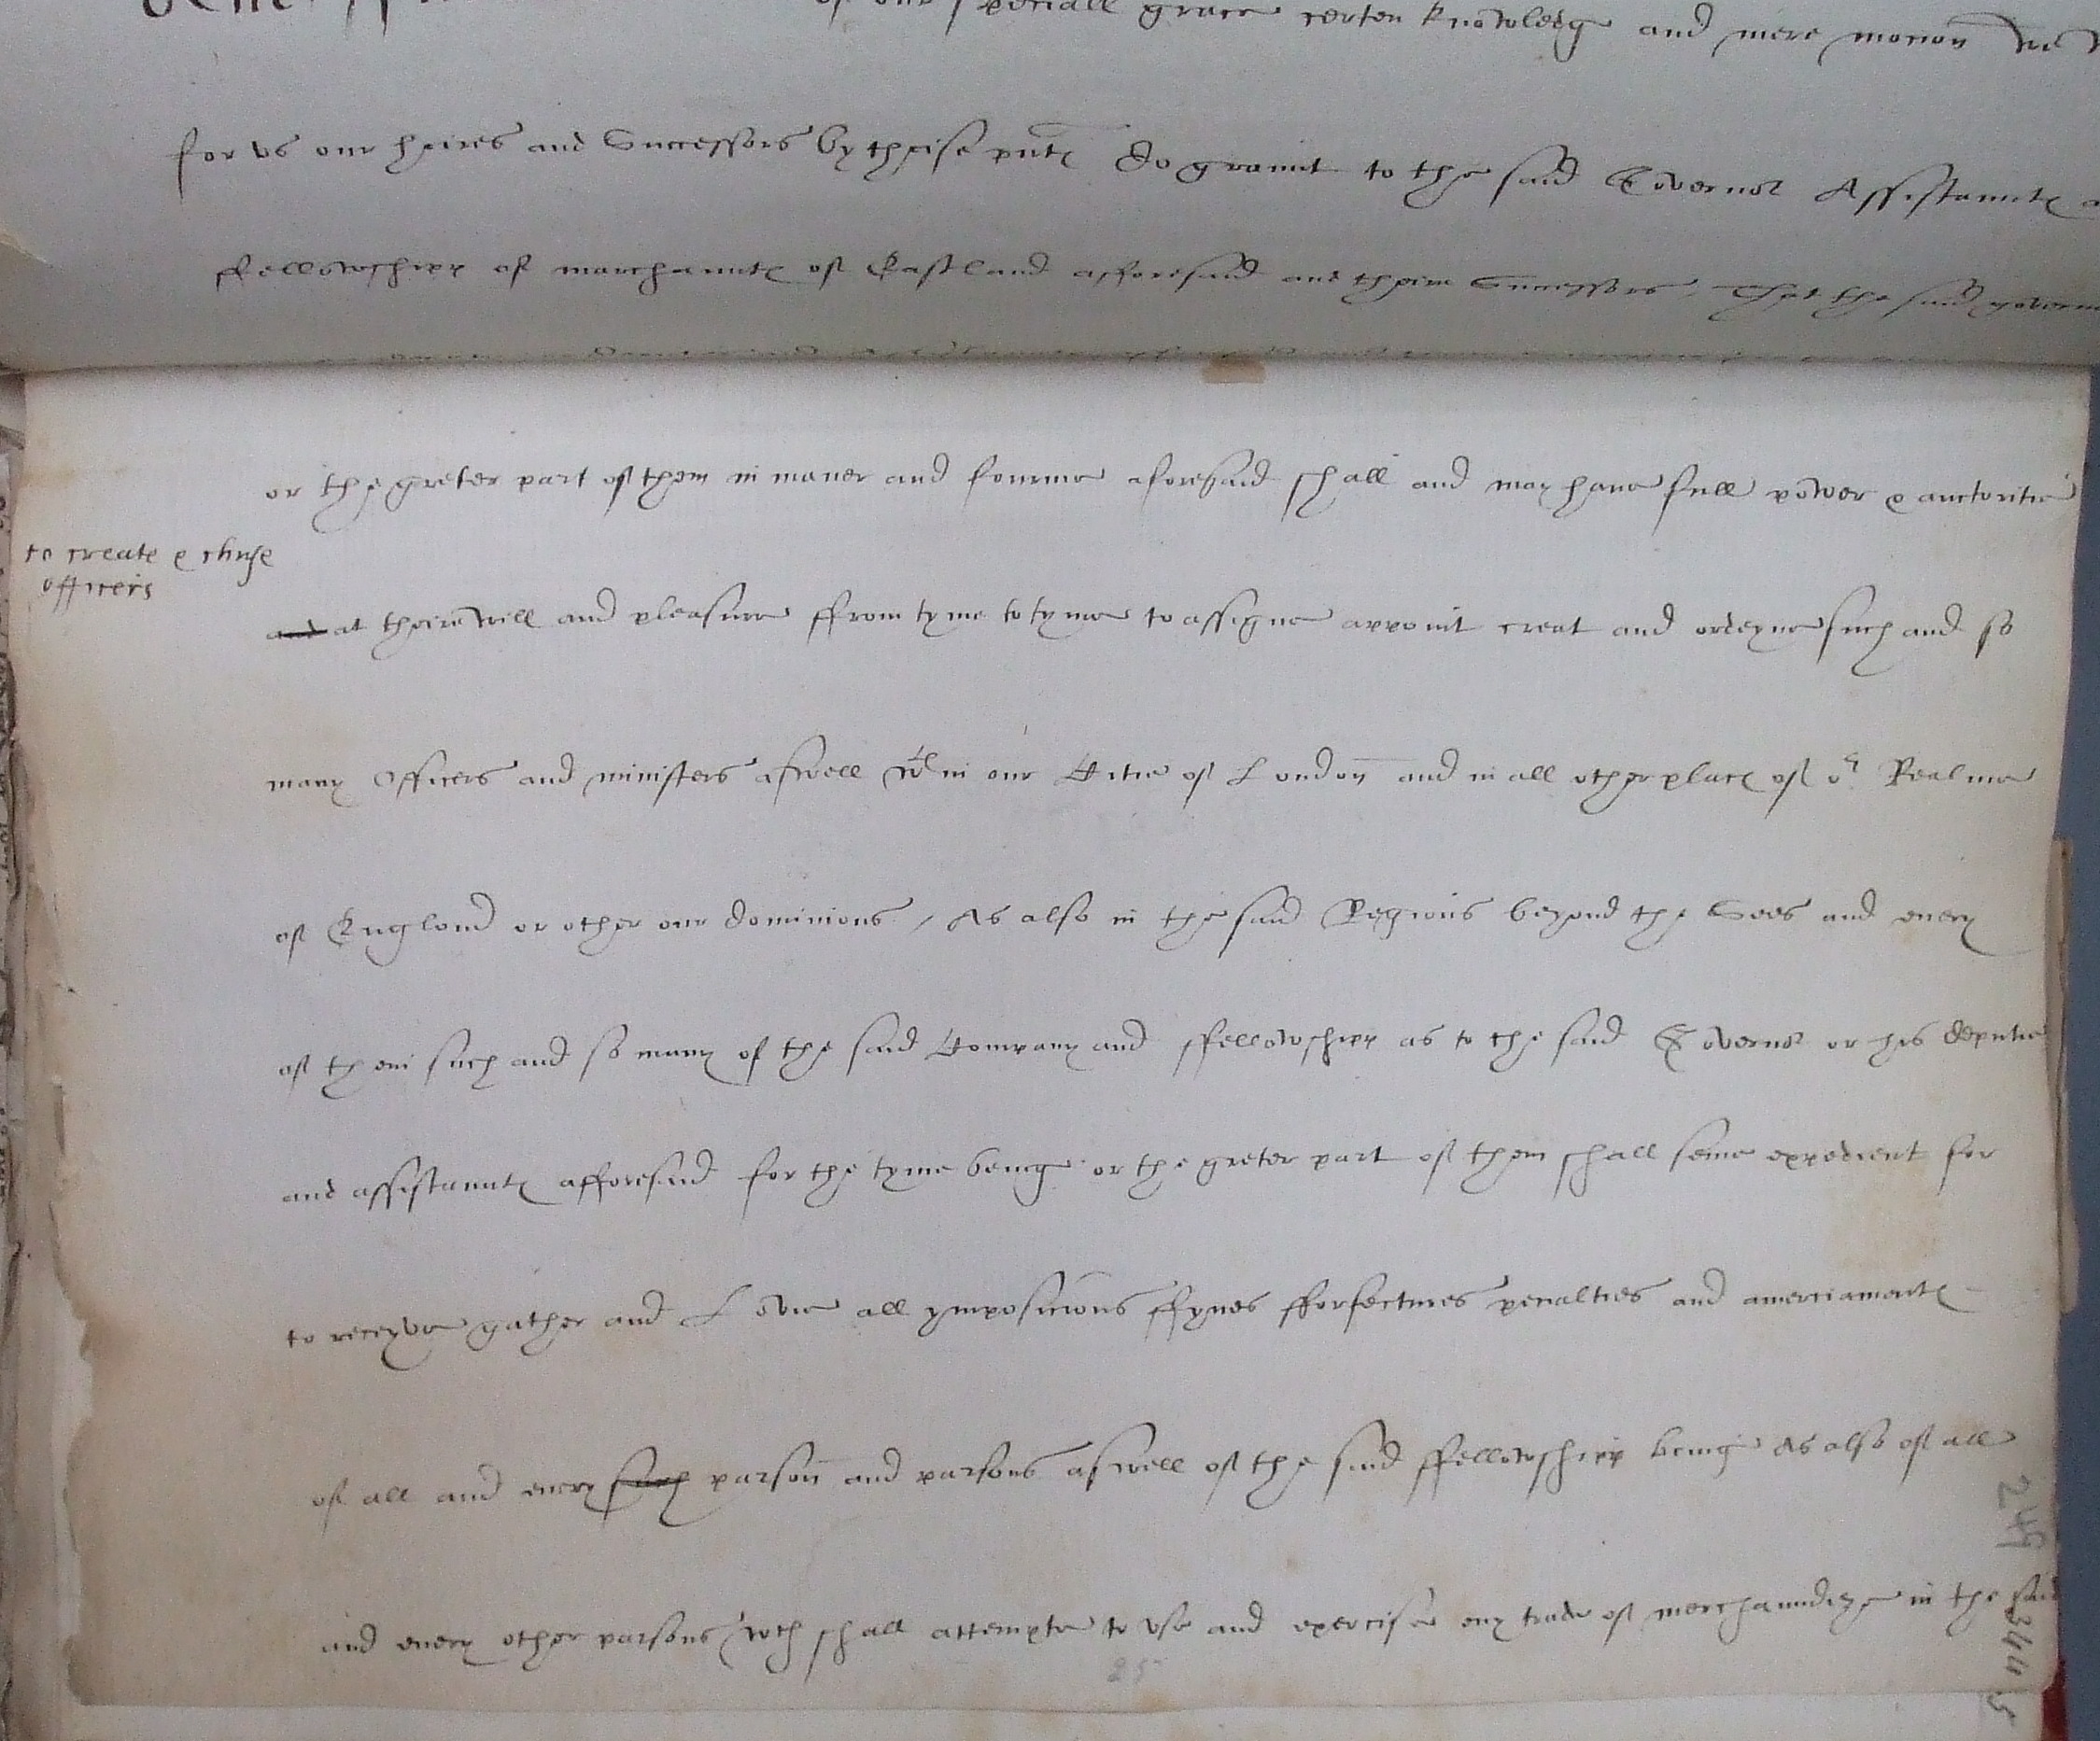 of our speciall grace certen knowledg and mere mocon we
for vs our heires and Successors by theise pnte do graunt to the said Governor Assistaunte
ffellowshipp of marchaunte of Eastland afforesaid and their Successors, That the said
or the greter part of them in maner and fourme aforesaid shall and may haue full power & auctoritie
to create & chuse
officers
and at their will and pleasure ffrom tyme to tyme to assigne appoint creat and ordeyne such and so
many Officers and ministers aswell wthin our Citie of London and in all other place of or Realme
of England or other our dominions / As also in the said Regions beyond the Sees and euery
of them such and so many of the said Company and ffellowshipp as to the said Governor or his deputie
and assistaunte afforesaid for the tyme being or the greter part of them shall seme expedient for
to receyve gather and Levie all ymposicions ffynes fforfectures penalties and amerciamente
of all and euery such parson and parsons aswell of the said ffellowshipp being As also of all
and euery other parsons wch shall attempte to vse and exercise eny trade of merchaundize in the said
25
249
3445